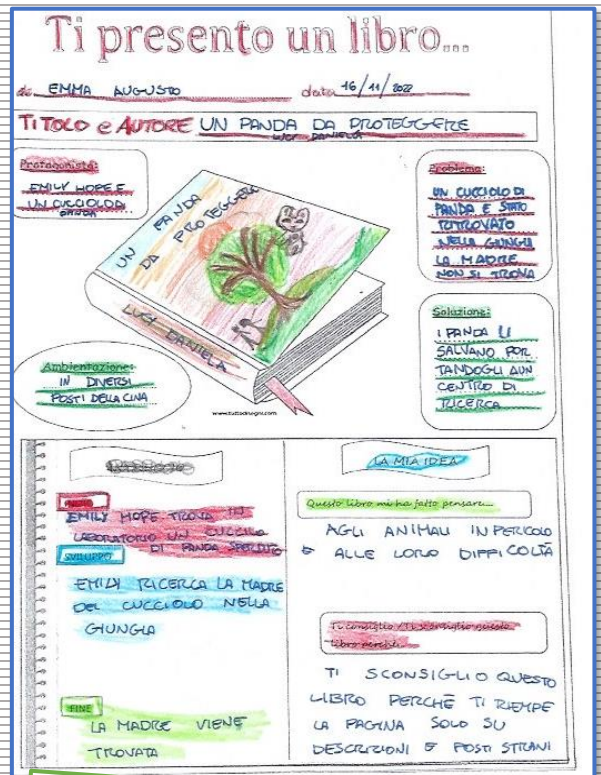 Ti presento un libro...
da EMMA AUGUSTO data 16/11/2022
TITOLO e AUTORE UN PANDA DA PROTEGGERE
LUCY DANIELA
Protagonista:
EMILY HOPE E
UN CUCCIOLO DA
PANDA
Problema:
UN CUCCIOLO DI
PANDA E STATO
RITROVATO
NELLA GIUNGLA
LA MADRE
NON SI TROVA
UN PANDA
DA PROTEGGERE
LUCY DANIELA
Soluzione:
I PANDA LI
SALVANO POR
TANDOGLI A UN
CENTRO DI
RICERCA
Ambientazione:
IN DIVERSI
POSTI DELLA CINA
www.tuttodisegni.com
EMILY HOPE TROVA IN
LABORATORIO UN CUCCIOLO
DI PANDA SPERDUTO
SVILUPPO
EMILY RICERCA LA MADRE
DEL CUCCIOLO NELLA
GIUNGLA
FINE
LA MADRE VIENE
TROVATA
LA MIA IDEA
Questo libro mi ha fatto pensare...
AGLI ANIMALI IN PERICOLO
E ALLE LORO DIFFICOLTÀ
Ti consiglio / Ti sconsiglio questo
libro perché...
TI SCONSIGLIO QUESTO
LIBRO PERCHÈ TI RIEMPE
LA PAGINA SOLO SU
DESCRIZIONI E POSTI STRANI